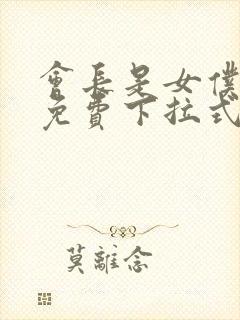 會長是女僕
免費下拉式
莫離念